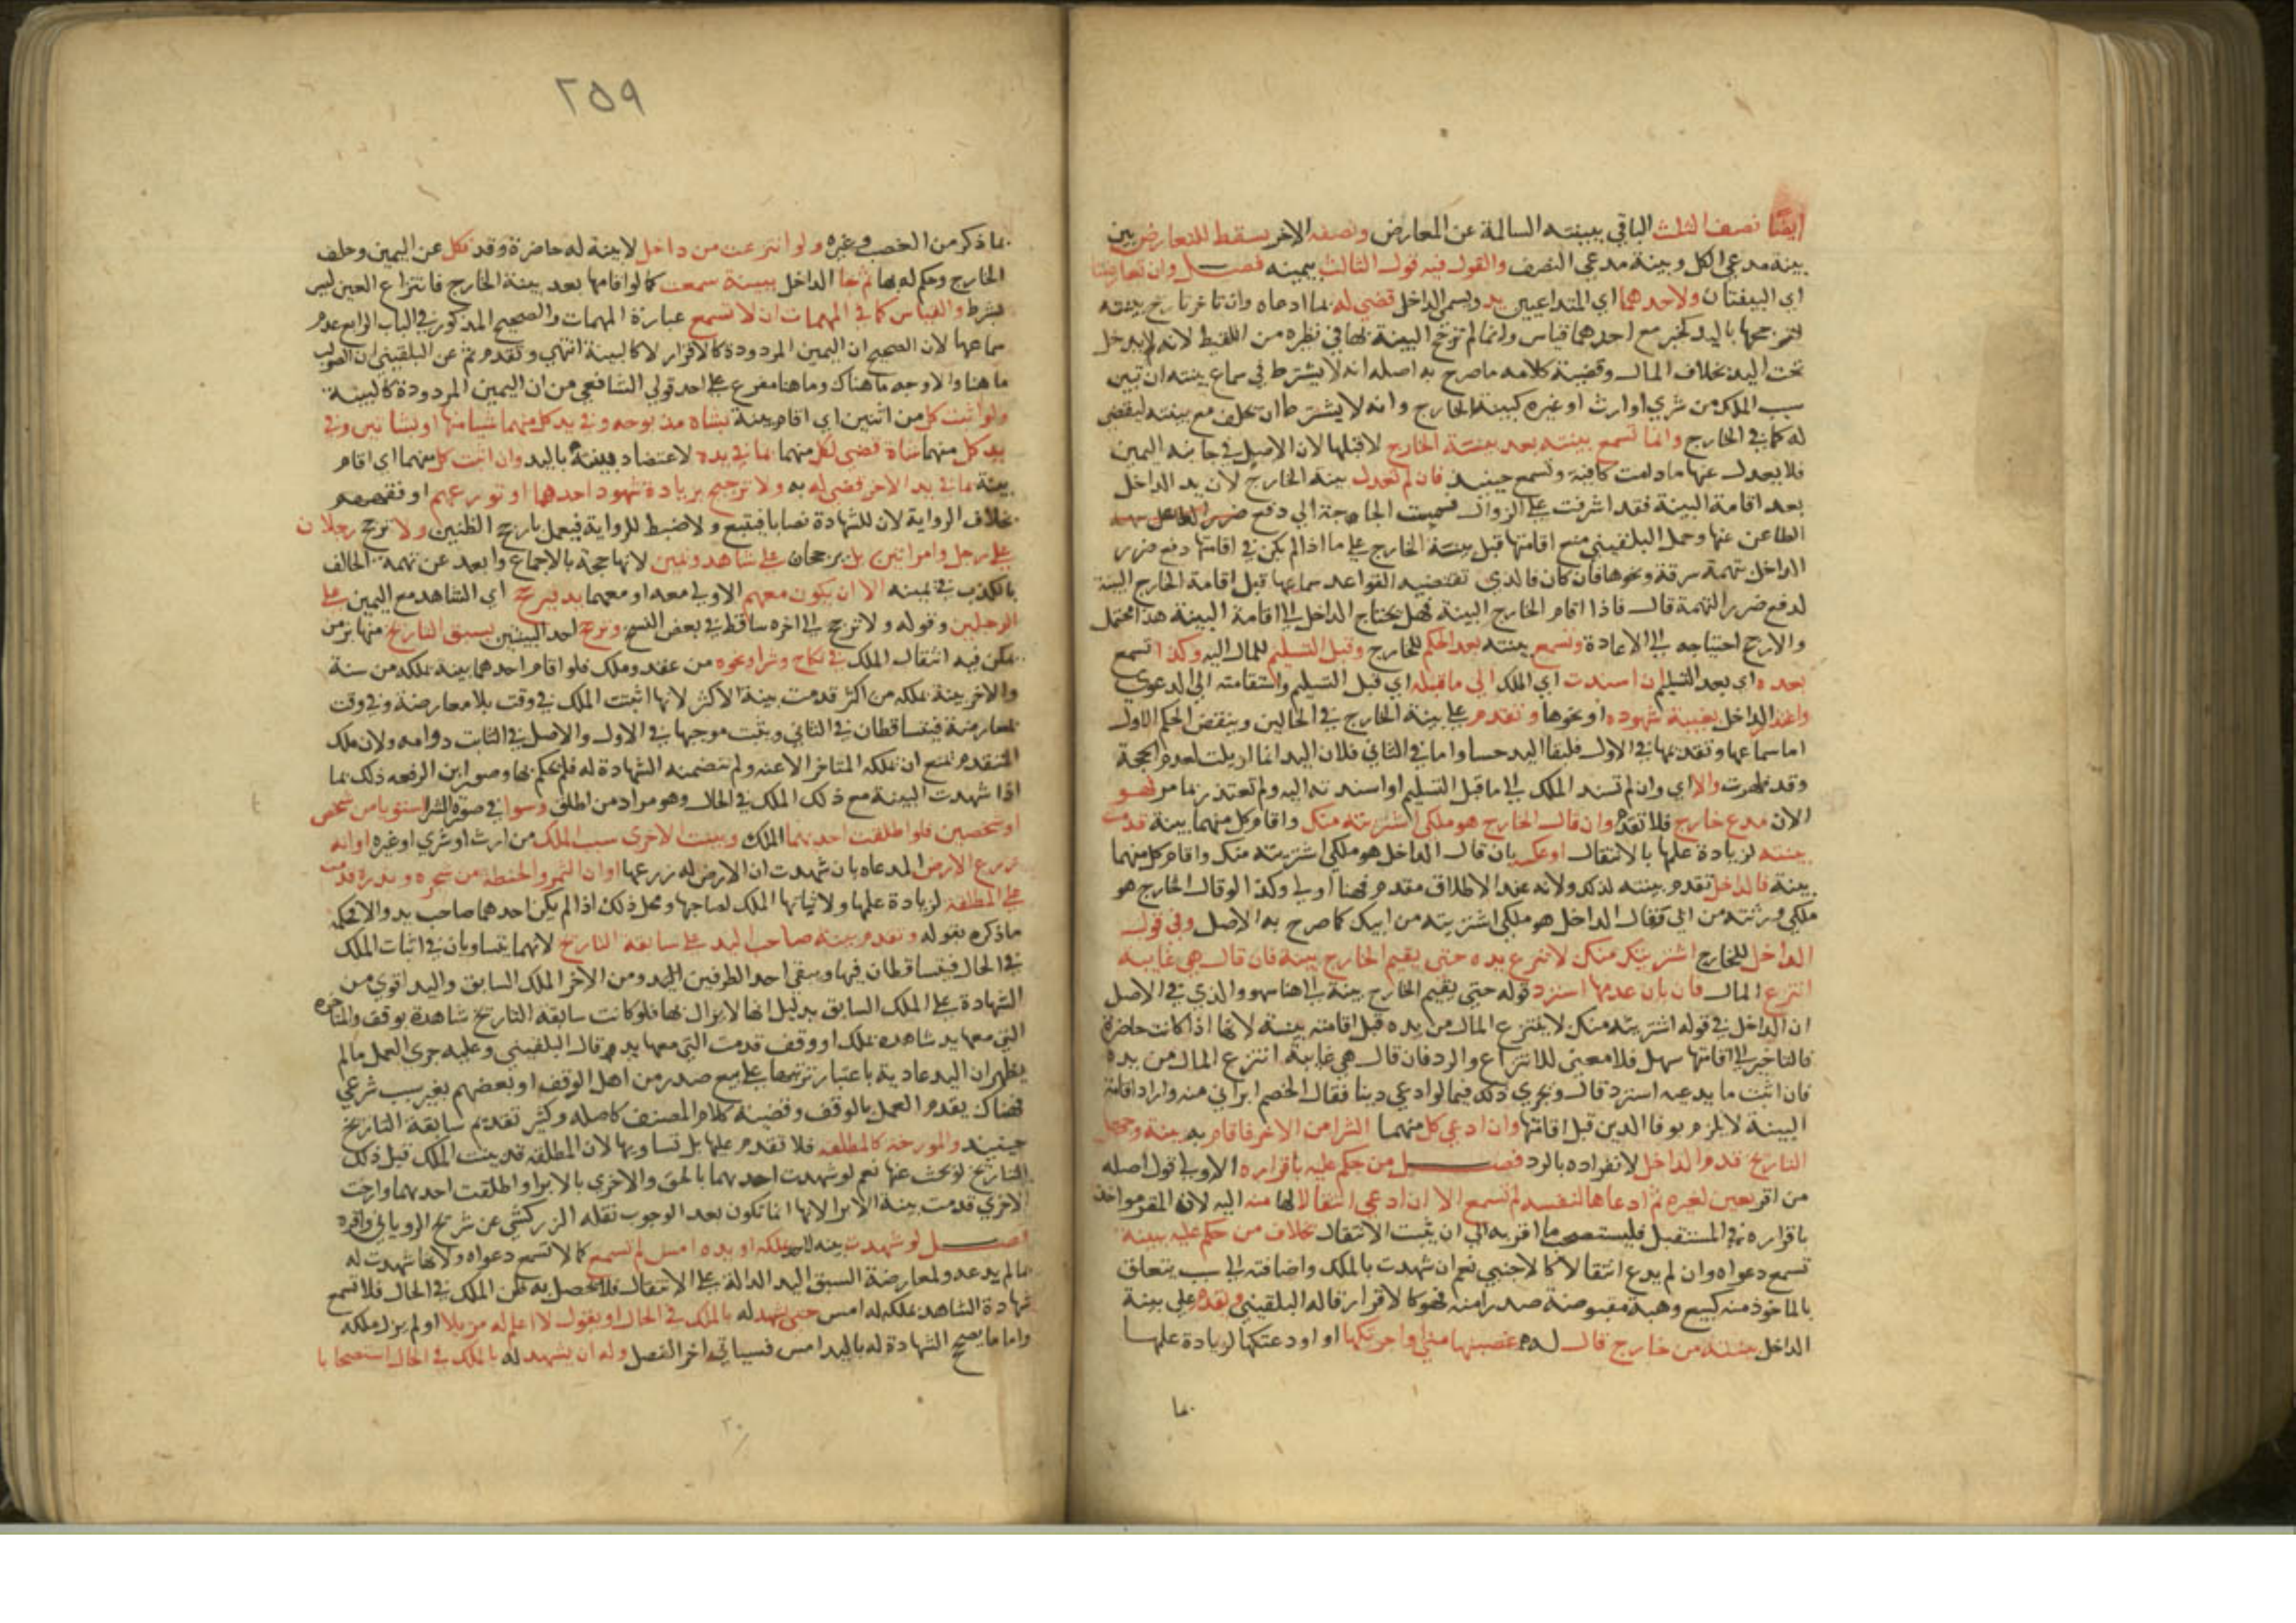 ايضا نصف الثلث الباقي ببينته السالمة عن المعارض ونصفه الاخر يسقط للتعارض بين
بينة مدعي الكل وبينة مدعي النصف والقول فيه قول الثالث بيمينه فصل وان تعارضتا
اي البينتان ولاحدهما اي المتداعيين يد ويسمى الداخل قضي له بما ادعاه وان تاخر تاريخ بينته
لترجحها باليد كخبر مع احدهما قياس وانما لم ترجح البينة بها في نظيره من اللقيط لانه لا يدخل
تحت اليد بخلاف المال وقضية كلامه ما صرح به اصله انه لا يشترط في سماع بينته ان تبين
سبب الملك من شري او ارث او غيره كبينة الخارج وانه لا يشترط ان يحلف مع بينته ليقضى
له كما في الخارج وانما تسمع بينته بعد بينة الخارج لا قبلها لان الاصل في جانبه اليمين
فلا يعدل عنها ما دامت كافية وتسمع حينئذ فان لم تعدل بينة الخارج لان يد الداخل
بعد اقامة البينة فقد اشرفت على الزوال فمست الحاجة الى دفع ضرر
الطاعن عنها وحمل البلقيني منع اقامتها قبل بينة الخارج على ما اذا لم يكن في اقامتها دفع ضرر
الداخل بتهمة سرقة ونحوها فان كان فالذي تقتضيه القواعد سماعها قبل اقامة الخارج البينة
لدفع ضرر التهمة قال فاذا اقام الخارج البينة فهل يحتاج الداخل الى اقامة البينة هذا محتمل
والارجح احتياجه الى الاعادة وتسمع بينته بعد الحكم للخارج وقبل التسليم للمال اليه وكذا تسمع
بعده اي بعد التسليم ان اسندت اي الملك الى ما قبله اي قبل التسليم واستقامته الى الدعوى
واعتذر الداخل بغيبة شهوده او نحوها وتقدم على بينة الخارج في الحالين وينقض الحكم الاول
اما سماعها وتقديمها في الاول فلبقا اليد حسا واما في الثاني فلان اليد انما ازيلت لعدم الحجة
وقد ظهرت والا اي وان لم تسند الملك الى ما قبل التسليم او اسندته اليه ولم تعتذر بما مر فهو
الان مدع خارج فلا تقدم وان قال الخارج هو ملكي اشتريته منك واقام كل منهما بينة قدمت
بينته لزيادة علمها بالانتقال او عكسه بان قال الداخل هو ملكي اشتريته منك واقام كل منهما
بينة فالداخل تقدم بينته لذلك ولانه عند الاطلاق مقدم فهنا اولى وكذا لو قال الخارج هو
ملكي ورثته من ابي فقال الداخل هو ملكي اشتريته من ابيك كما صرح به الاصل وفي قول
الداخل للخارج اشتريته منك لا تنزع يده حتى يقيم الخارج بينة فان قال هي غايبة
انتزع المال فان بان عدمها استرد قوله حتى يقيم الخارج بينة الى هنا سهو والذي في الاصل
ان الداخل في قوله اشتريته منك لا ينتزع المال من يده قبل اقامته بينة لانها اذا كانت حاضرة
فالتاخير الى اقامتها سهل فلا معنى للانتزاع والرد فان قال هي غايبة انتزع المال من يده
فان اثبت ما يدعيه استرد قال ويجري ذلك فيما لو ادعي دينا فقال الخصم ابراني منه واراد اقامة
البينة لا يلزم بوفا الدين قبل اقامتها وان ادعي كل منهما الشرا من الاخر فاقام به بينة وجهل
التاريخ قدم الداخل لانفراده باليد فصل من حكم عليه باقراره الاولى قول اصله
من اقر بعين لغيره ثم ادعاها لنفسه لم تسمع الا ان ادعي انتقالا لها منه اليه لان المقر مواخذ
باقراره في المستقبل فيستصحب ما اقر به الى ان يثبت الانتقال بخلاف من حكم عليه ببينة
تسمع دعواه وان لم يدع انتقالا كالاجنبي نعم ان شهدت بالملك واضافته الى سبب يتعلق
بالماخوذ منه كبيع وهبة مقبوضة صدرا منه فهو كالاقرار قاله البلقيني وتقدم على بينة
الداخل بينة من خارج قال له غصبتها مني او اجرتكها او اودعتكها لزيادة علمها
بما
٢٥٩
بما ذكر من الغصب وغيره ولو انتزعت من داخل لا بينة له حاضرة وقد نكل عن اليمين وحلف
الخارج وحكم له بها ثم جا الداخل ببينة سمعت كما لو اقامها بعد بينة الخارج فانتزاع العين ليس
بشرط والقياس كما في المهمات ان لا تسمع عبارة المهمات والصحيح المذكور في الباب الرابع عدم
سماعها لان الصحيح ان اليمين المردودة كالاقرار لا كالبينة انتهي وتقدم ثم عن البلقيني ان الصواب
ما هنا والاوجه ما هناك وما هنا مفرع على احد قولي الشافعي من ان اليمين المردودة كالبينة
ولو اثبت كل من اثنين اي اقام بينة بشاة مذبوحه وفي يد كل منهما شيا منها او بشاتين وفي
يد كل منهما شاة قضي لكل منهما بما في يده لاعتضاد بينته باليد وان اثبت كل منهما اي اقام
بينة بما في يد الاخر قضي له به ولا ترجيح بزيادة شهود احدهما او تورعهم او فقههم
بخلاف الرواية لان للشهادة نصابا فيتبع ولا ضبط للرواية فيعمل بارجح الظنين ولا ترجح رجلان
على رجل وامراتين بل يرجحان على شاهد ويمين لانها حجة بالاجماع وابعد عن تهمة الحالف
بالكذب في يمينه الا ان يكون معهم الاولى معه او معهما يد فيرجح اي الشاهد مع اليمين على
الرجلين وقوله ولا ترجح الى اخره ساقط في بعض النسخ وترجح احد البينتين بسبق التاريخ منها بزمن
يمكن فيه انتقال الملك في نكاح وشرا ونحوه من عقد وملك فلو اقام احدهما بينة بملكه من سنة
والاخر بينة بملكه من اكثر قدمت بينة الاكثر لانها اثبتت الملك في وقت بلا معارضة وفي وقت
بمعارضة فيتساقطان في الثاني ويثبت موجبها في الاول والاصل في الثابت دوامه ولان ملك
المتقدم يمنع ان يملكه المتاخر الا عنه ولم تتضمنه الشهادة له فلم يحكم بها وصور ابن الرفعه ذلك بما
اذا شهدت البينة مع ذلك الملك في الحال وهو مراد من اطلق وسوا في صورة الشرا استويا من شخص
او شخصين فلو اطلقت احديهما الملك وبينت الاخرى سبب الملك من ارث او شري او غيره او انه
زرع الارض المدعاه بان شهدت ان الارض له زرعها او ان الثمر والحنطة من شجره وبذره قدمت
على المطلقة لزيادة علمها ولاثباتها الملك لصاحبها ومحل ذلك اذا لم يكن احدهما صاحب يد والا فحكمه
ما ذكره بقوله وتقدم بينة صاحب اليد على سابقة التاريخ لانهما يتساويان في اثبات الملك
في الحال فيتساقطان فيها ويبقى احد الطرفين اليد ومن الاخر الملك السابق واليد اقوى من
الشهادة على الملك السابق بدليل انها لا تزال بها فلو كانت سابقة التاريخ شاهدة بوقف والمتاخرة
التي معها يد شاهدة بملك او وقف قدمت التي معها يد قال البلقيني وعليه جرى العمل ما لم
يظهر ان اليد عادية باعتبار ترتبها على بيع صدر من اهل الوقف او بعضهم بغير سبب شرعي
فهناك يقدم العمل بالوقف وقضية كلام المصنف كاصله وكثير تقديم سابقة التاريخ
حينئذ والمورخة كالمطلقة فلا تقدم عليها بل تساويها لان المطلقة قد تثبت الملك قبل ذلك
التاريخ لو بحث عنها نعم لو شهدت احديهما بالحق والاخرى بالابرا واطلقت احديهما وارخت
الاخرى قدمت بينة الابرا لانها انما تكون بعد الوجوب نقله الزركشي عن شريح الروياني واقره
فصل لو شهدت بينة بملكه او يده امس لم تسمع كما لا تسمع دعواه ولانها شهدت له
بما لم يدعه ولمعارضة السبق اليد الدالة على الانتقال فلا يحصل به ظن الملك في الحال فلا تسمع
شهادة الشاهد بملكه له امس حتى يشهد له بالملك في الحال او يقول لا اعلم له مزيلا او لم يزل ملكه
واما ما يصحح الشهادة له باليد امس فسياتي اخر الفصل وله ان يشهد له بالملك في الحال استصحابا